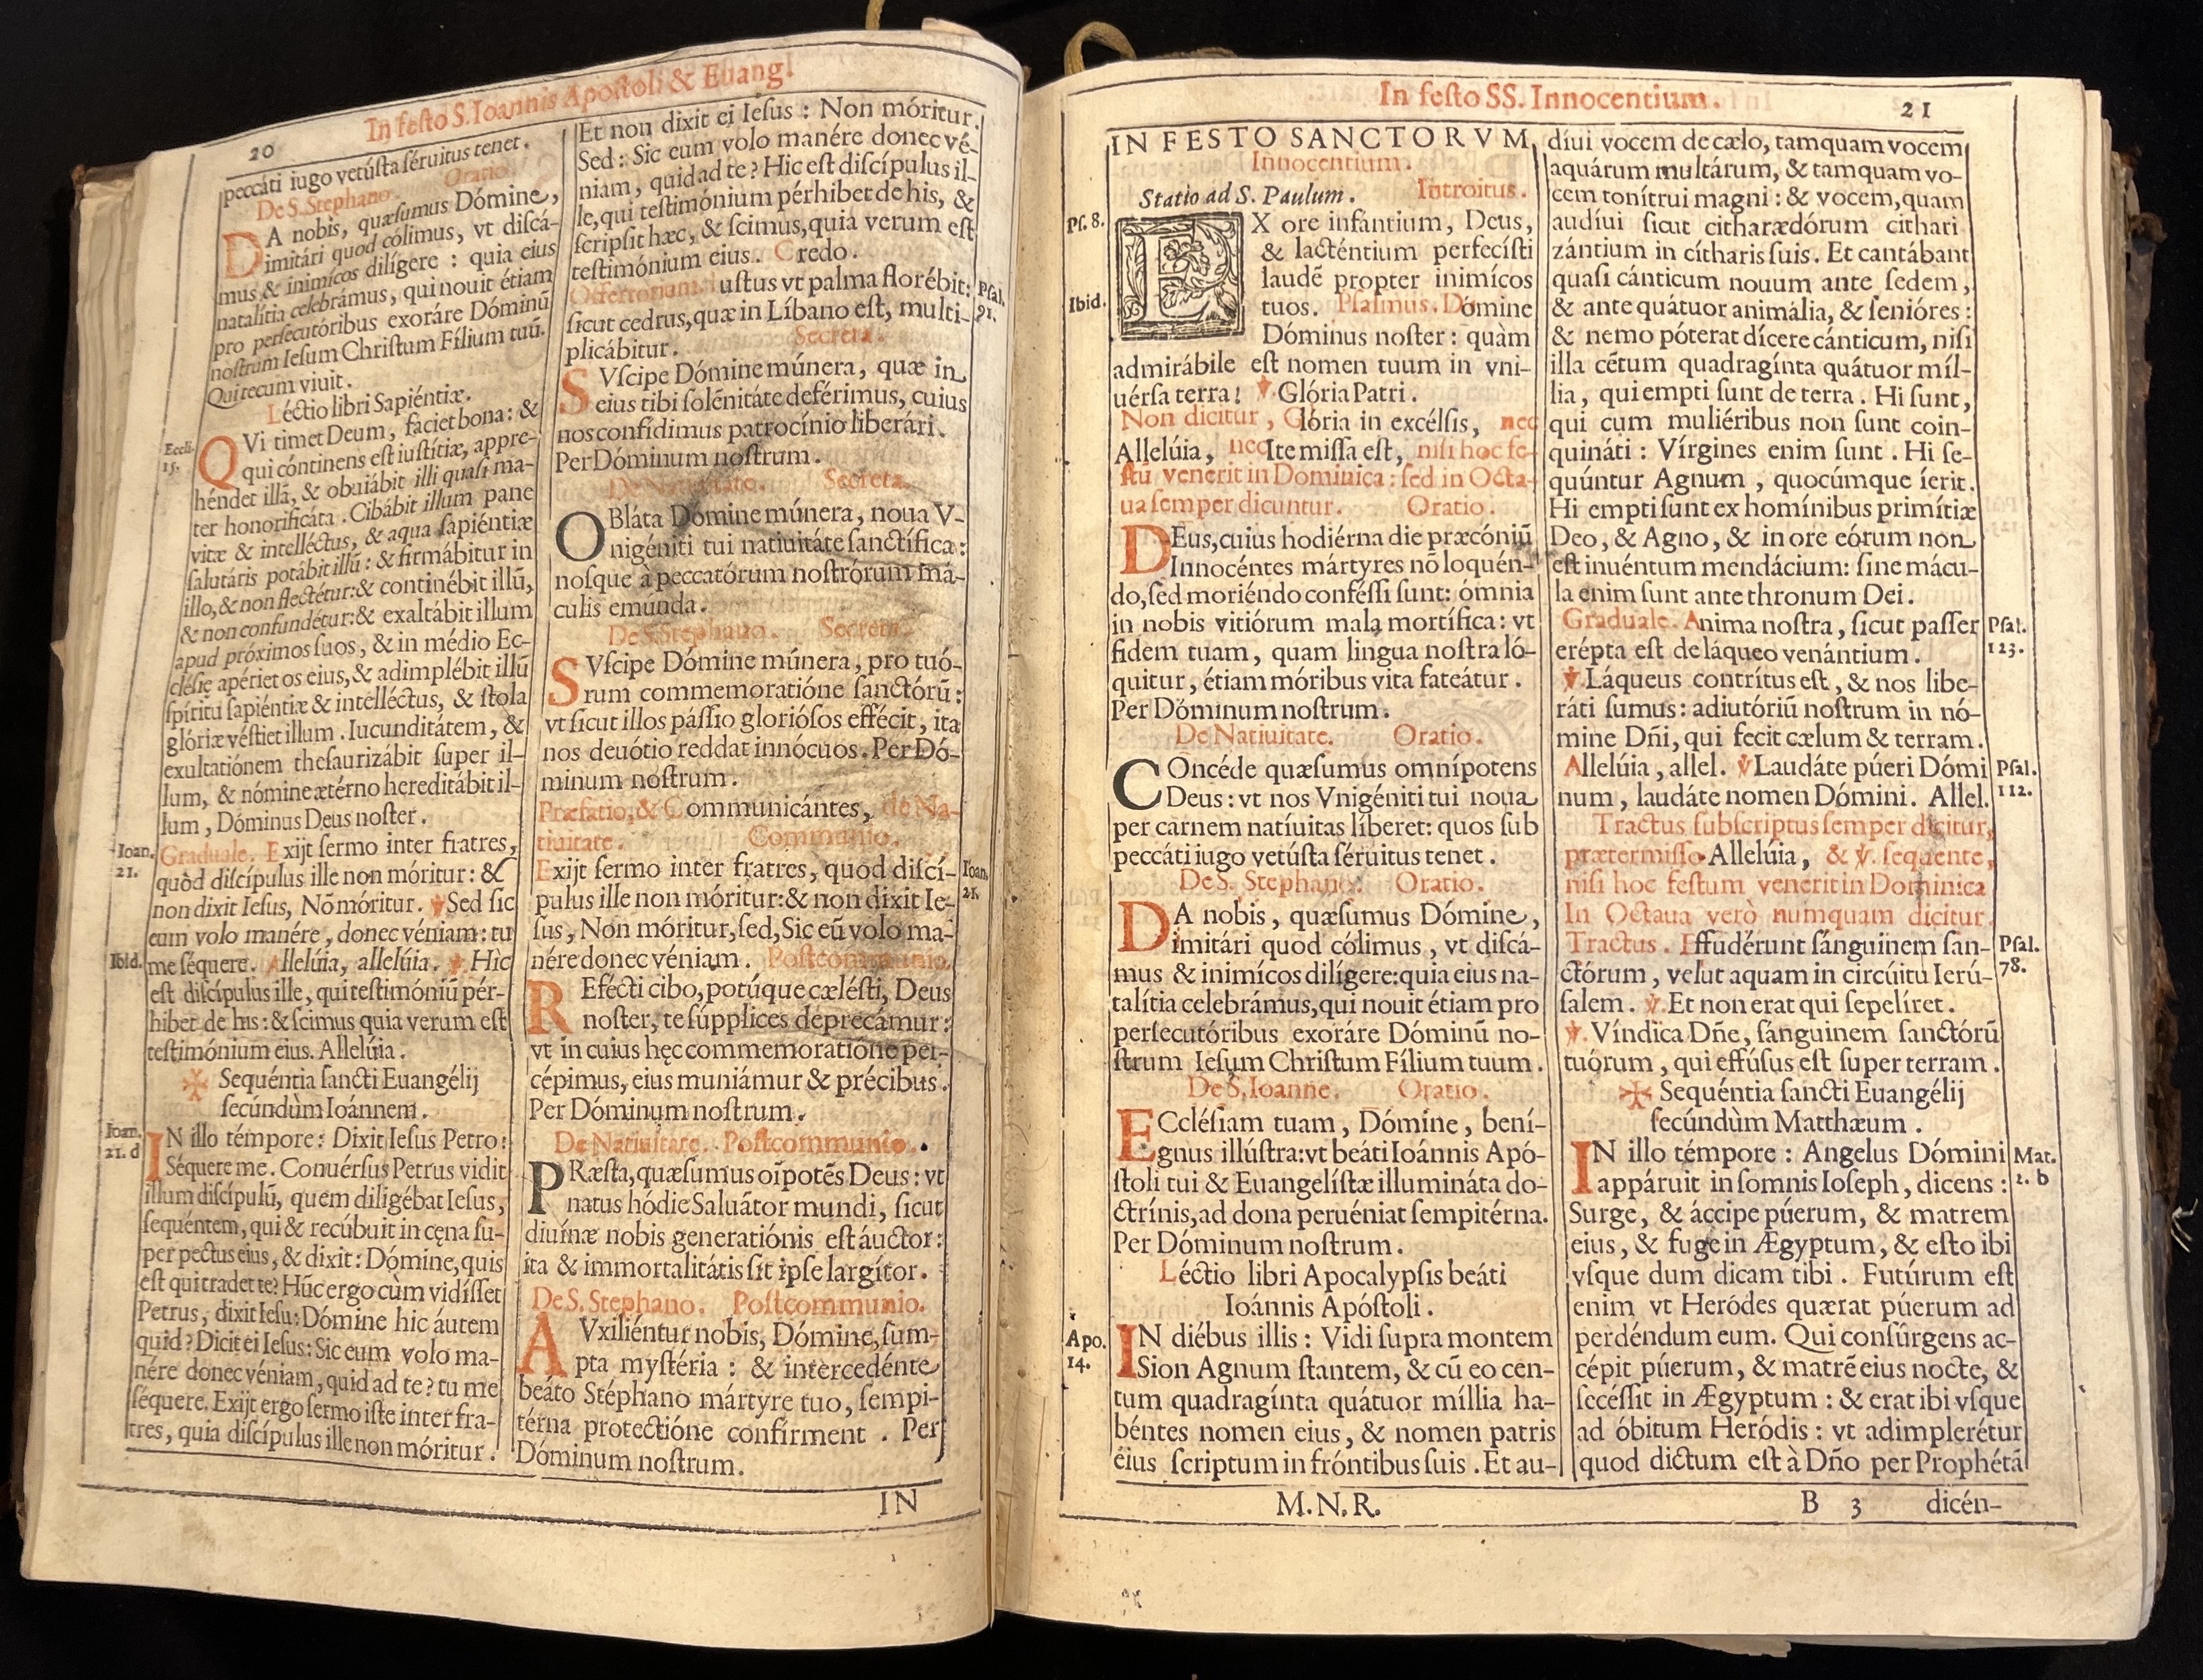 In festo S. Ioannis Apostoli & Euang!
20
peccáti iugo vetústa séruitus tenet.
De S. Stephano. Oratio.
DA nobis, quæsumus Dómine,
imitári quod cólimus, vt discá-
mus & inimícos dilígere : quia eius
natalítia celebrámus, qui nouit étiam
pro persecutóribus exoráre Dóminū
nostrum Iesum Christum Fílium tuū.
Qui tecum viuit.
Léctio libri Sapiéntiæ.
Eccli. 15.
QVi timet Deum, faciet bona: &
qui cóntinens est iustítiæ, appre-
héndet illā, & obuiábit illi quasi ma-
ter honorificáta . Cibábit illum pane
vitæ & intelléctus, & aqua sapiéntiæ
salutáris potábit illū : & firmábitur in
illo, & non flectétur:& continébit illū,
& non confundétur:& exaltábit illum
apud próximos suos, & in médio Ec-
clésię apériet os eius, & adimplébit illū
spíritu sapiéntiæ & intelléctus, & stola
glóriæ véstiet illum . Iucunditátem, &
exultatiónem thesaurizábit super il-
lum, & nómine ætérno hereditábit il-
lum, Dóminus Deus noster.
Ioan. 21.
Graduale. Exijt sermo inter fratres,
quòd discípulus ille non móritur: &
non dixit Iesus, Nō móritur. ℣ Sed sic
eum volo manére, donec véniam: tu
Ibid.
me séquere. Allelúia, allelúia. ℣ Hic
est discípulus ille, qui testimóniū pér-
hibet de his : & scimus quia verum est
testimónium eius. Allelúia.
✠ Sequéntia sancti Euangélij
secúndùm Ioánnem.
Ioan. 21. d
IN illo témpore: Dixit Iesus Petro:
Séquere me. Conuérsus Petrus vidit
illum discípulū, quem diligébat Iesus,
sequéntem, qui & recúbuit in cęna su-
per pectus eius, & dixit: Dómine, quis
est qui tradet te? Hūc ergo cùm vidísset
Petrus, dixit Iesu: Dómine hic áutem
quid? Dicit ei Iesus: Sic eum volo ma-
nére donec véniam, quid ad te? tu me
séquere. Exijt ergo sermo iste inter fra-
tres, quia discípulus ille non móritur.
Et non dixit ei Iesus : Non móritur.
Sed : Sic eum volo manére donec vé-
niam, quid ad te? Hic est discípulus il-
le, qui testimónium pérhibet de his, &
scripsit hæc, & scimus, quia verum est
testimónium eius. Credo.
Offertorium. Iustus vt palma florébit:
Psal. 91.
sicut cedrus, quæ in Líbano est, multi-
plicábitur. Secreta.
SVscipe Dómine múnera, quæ in
eius tibi solēnitáte deférimus, cuius
nos confídimus patrocínio liberári.
Per Dóminum nostrum.
De Natiuitate. Secreta.
OBláta Dómine múnera, noua V-
nigéniti tui natiuitáte sanctífica:
nosque à peccatórum nostrórum má-
culis emúnda.
De S. Stephano. Secreta.
SVscipe Dómine múnera, pro tuó-
rum commemoratióne sanctórū:
vt sicut illos pássio gloriósos effécit, ita
nos deuótio reddat innócuos. Per Dó-
minum nostrum.
Præfatio, & Communicántes, de Na-
tiuitate. Communio.
Exijt sermo inter fratres, quod discí-
Ioan. 21.
pulus ille non móritur:& non dixit Ie-
sus, Non móritur, sed, Sic eū volo ma-
nére donec véniam. Postcommunio.
REfécti cibo, potúque cælésti, Deus
noster, te súpplices deprecámur:
vt in cuius hęc commemoratióne per-
cépimus, eius muniámur & précibus.
Per Dóminum nostrum.
De Natiuitate. Postcommunio.
PRæsta, quæsumus oīpotēs Deus : vt
natus hódie Saluátor mundi, sicut
diuínæ nobis generatiónis est áuctor:
ita & immortalitátis sit ipse largítor.
De S. Stephano. Postcommunio.
AVxiliéntur nobis, Dómine, sum-
pta mystéria : & intercedénte
beáto Stéphano mártyre tuo, sempi-
térna protectióne confírment . Per
Dóminum nostrum.
IN
In festo SS. Innocentium.
21
IN FESTO SANCTORVM
Innocentium.
Statio ad S. Paulum. Introitus.
Ps. 8.
EX ore infántium, Deus,
& lacténtium perfecísti
laudē propter inimícos
Ibid.
tuos. Psalmus. Dómine
Dóminus noster : quàm
admirábile est nomen tuum in vni-
uérsa terra! ℣. Glória Patri.
Non dicitur, Glória in excélsis, nec
Allelúia, nec Ite missa est, nisi hoc fe-
stū venerit in Dominica : sed in Octa-
ua semper dicuntur. Oratio.
DEus, cuius hodiérna die præcóniū
Innocéntes mártyres nō loquén-
do, sed moriéndo conféssi sunt: ómnia
in nobis vitiórum mala mortífica: vt
fidem tuam, quam lingua nostra ló-
quitur, étiam móribus vita fateátur.
Per Dóminum nostrum.
De Natiuitate. Oratio.
COncéde quæsumus omnípotens
Deus : vt nos Vnigéniti tui noua
per carnem natíuitas líberet: quos sub
peccáti iugo vetústa séruitus tenet.
De S. Stephano: Oratio.
DA nobis, quæsumus Dómine,
imitári quod cólimus, vt discá-
mus & inimícos dilígere:quia eius na-
talítia celebrámus, qui nouit étiam pro
persecutóribus exoráre Dóminū no-
strum Iesum Christum Fílium tuum.
De S. Ioanne. Oratio.
ECclésiam tuam, Dómine, bení-
gnus illústra:vt beáti Ioánnis Apó-
stoli tui & Euangelístæ illumináta do-
ctrínis, ad dona peruéniat sempitérna.
Per Dóminum nostrum.
Léctio libri Apocalypsis beáti
Ioánnis Apóstoli.
Apo. 14.
IN diébus illis : Vidi supra montem
Sion Agnum stantem, & cū eo cen-
tum quadragínta quátuor míllia ha-
béntes nomen eius, & nomen patris
éius scriptum in fróntibus suis . Et au-
díui vocem de cælo, tamquam vocem
aquárum multárum, & tamquam vo-
cem tonítrui magni : & vocem, quam
audíui sicut citharædórum cithari
zántium in cítharis suis. Et cantábant
quasi cánticum nouum ante sedem,
& ante quátuor animália, & senióres :
& nemo póterat dícere cánticum, nisi
illa cētum quadragínta quátuor míl-
lia, qui empti sunt de terra. Hi sunt,
qui cum muliéribus non sunt coin-
quináti : Vírgines enim sunt . Hi se-
quúntur Agnum, quocúmque íerit.
Hi empti sunt ex homínibus primítiæ
Deo, & Agno, & in ore eórum non
est inuéntum mendácium: sine mácu-
la enim sunt ante thronum Dei.
Graduale. Anima nostra, sicut passer
Psal. 123.
erépta est de láqueo venántium.
℣ Láqueus contrítus est, & nos libe-
ráti sumus: adiutóriū nostrum in nó-
mine Dñi, qui fecit cælum & terram.
Allelúia, allel. ℣ Laudáte púeri Dómi
Psal. 112.
num, laudáte nomen Dómini. Allel.
Tractus subscriptus semper dicitur,
prætermisso Allelúia, & ℣. sequente,
nisi hoc festum venerit in Dominica
In Octaua verò numquam dicitur.
Tractus. Effudérunt sánguinem san-
Psal. 78.
ctórum, velut aquam in circúitu Ierú-
salem. ℣. Et non erat qui sepelíret.
℣. Víndica Dñe, sánguinem sanctórū
tuórum, qui effúsus est super terram.
✠ Sequéntia sancti Euangélij
secúndùm Matthæum.
Mat. 2. b
IN illo témpore : Angelus Dómini
appáruit in somnis Ioseph, dicens :
Surge, & áccipe púerum, & matrem
eius, & fuge in Ægyptum, & esto ibi
vsque dum dicam tibi. Futúrum est
enim vt Heródes quærat púerum ad
perdéndum eum. Qui consúrgens ac-
cépit púerum, & matrē eius nocte, &
secéssit in Ægyptum : & erat ibi vsque
ad óbitum Heródis : vt adimplerétur
quod dictum est à Dño per Prophétā
M.N.R.
B 3
dicén-